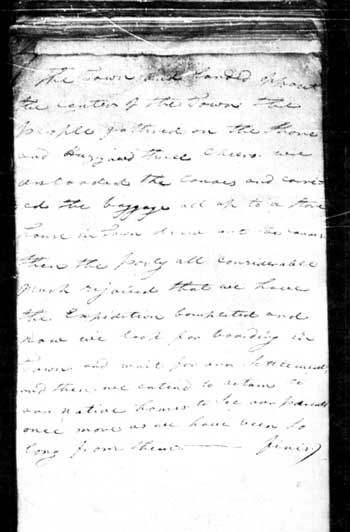 the Town and landed oppocit
the center of the Town. the
people gathred on the Shore
and Huzzared three cheers. we
unloaded the canoes and carri-
ed the baggage all up to a Store
house in Town. drew out the canoes
then the party all considerable
much rejoiced that we have
the Expedition Completed and
now we look for boarding in
Town and wait for our Settlement
and then we entend to return to
our native homes to See our parents
once more as we have been So
long from them.— finis.